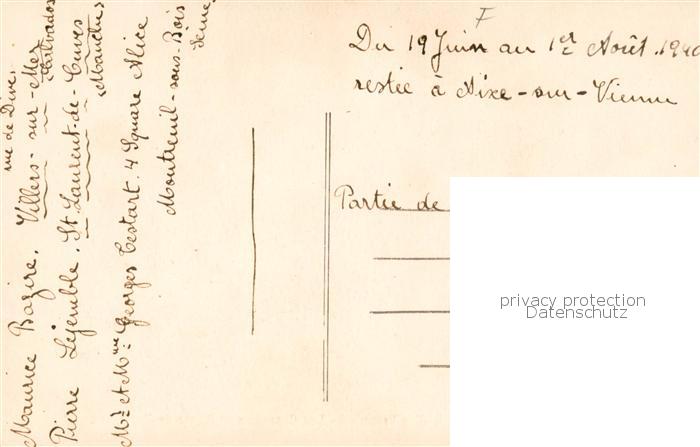 F
Du 19 Juin au 1er Août 1940
restée à Aixe-sur-Vienne
Partie de
privacy protection
Datenschutz
rue de Dive.
Maurice Bazire. Villers-sur-Mer
Calvados
Pierre Lejemble. St Laurent-de-Cuves
(Manche)
Mr et Mme Georges Testart. 4 Square Alice
Montreuil-sous-Bois
Seine